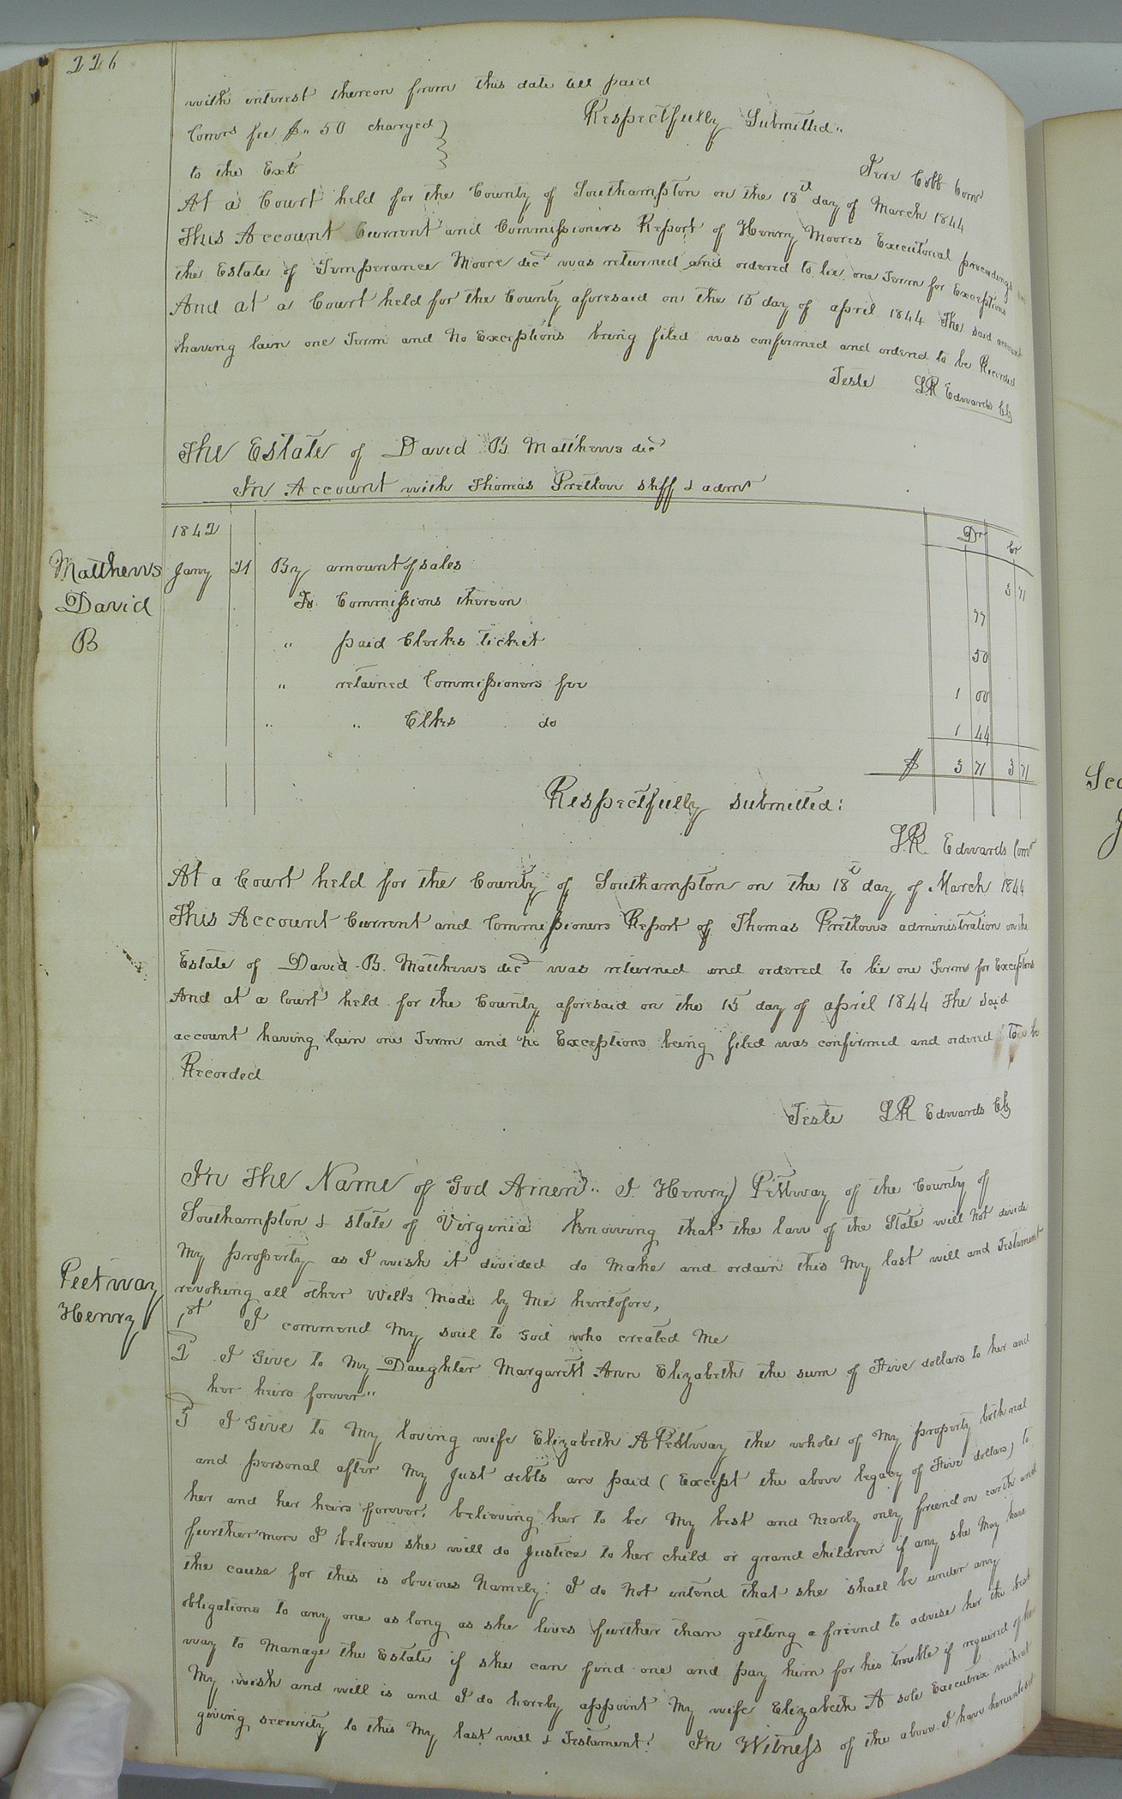 226
with interest thereon from this date till paid
Comrs fee $" 50 charged
Respectfully Submitted"
to the Extr
Cobb Comr
At a Court held for the County of Southampton on the 18th day of March 1844
This Account Current and Commissioners Report of Henry Moores Executorial proceedings on
the Estate of Temperance Moore decd was returned and ordered to lie one Term for Exceptions
And at a Court held for the County aforesaid on the 15 day of april 1844 The said account
having lain one Term and No Exceptions being filed was confirmed and ordered to be Recorded
Teste L.R Edwards Clk
The Estate of David B Matthews decd
In Account with Thomas Pretlow shff & admr
1842 Dr Cr
Matthews
David
B
Jany 31 By amount of sales 3 71
To Commissions thereon 77
" paid Clerkes ticket 50
" retained Commissioners fee 1 00
" " Clkes do 1 44
$ 3 71 3 71
Respectfully submitted:
L.R. Edwards Comr
At a Court held for the County of Southampton on the 18th day of March 1844
This Account Current and Commissioners Report of Thomas Pretlows administration on the
Estate of David B. Matthews decd was returned and ordered to lie one Term for Exceptions
And at a Court held for the County aforesaid on the 15 day of april 1844 The said
account having lain one Term and no Exceptions being filed was confirmed and ordered to be
Recorded
Teste L.R Edwards Clk
Peetway
Henry
In The Name of God Amen" I Henry Pettway of the County of
Southampton & state of Virginia Knowing that the law of the State will not divide
My property as I wish it divided do make and ordain this My last will and Testament
revoking all other Wills Made by Me heretofore,
1st I commend My soul to God who created Me
2 I Give to My Daughter Margarett Ann Elizabeth the sum of Five dollars to her and
her heirs forever"
3 I Give to My loving wife Elizabeth A Pettway the whole of My property both real
and personal after My just debts are paid (Except the above legacy of Five dollars) to
her and her heirs forever. believing her to be My best and Nearly only friend on earth and
furthermore I believe she will do Justice to her child or grand children if any she May have
the cause for this is obvious Namely: I do Not intend that she shall be under any
obligations to any one as long as she lives further than getting a friend to advise her the best
way to Manage the Estate if she can find one and pay him for his trouble if required of her
My wish and will is and I do hereby appoint My wife Elizabeth A sole Executrix without
giving security to this My last will & Testament: In Witness of the above I have hereunto set